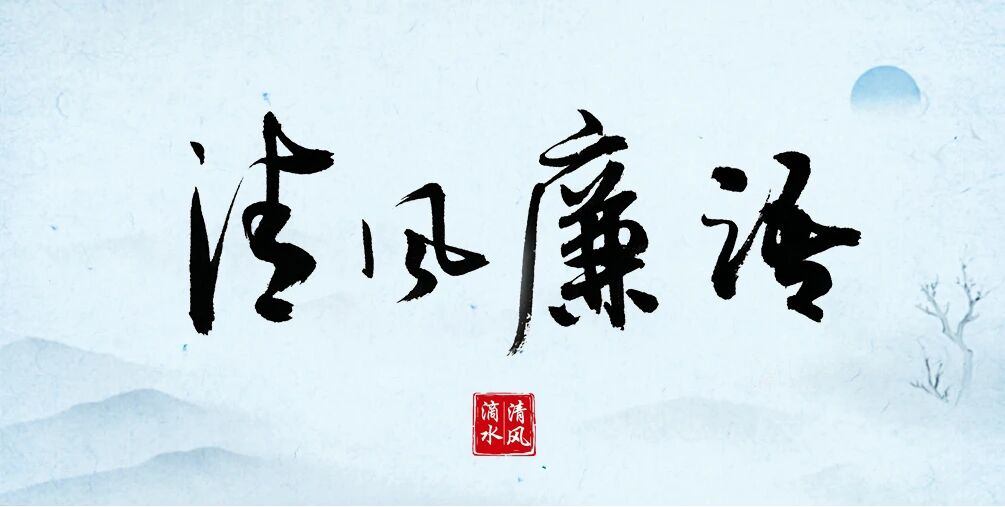 清风廉语
清风
滴水